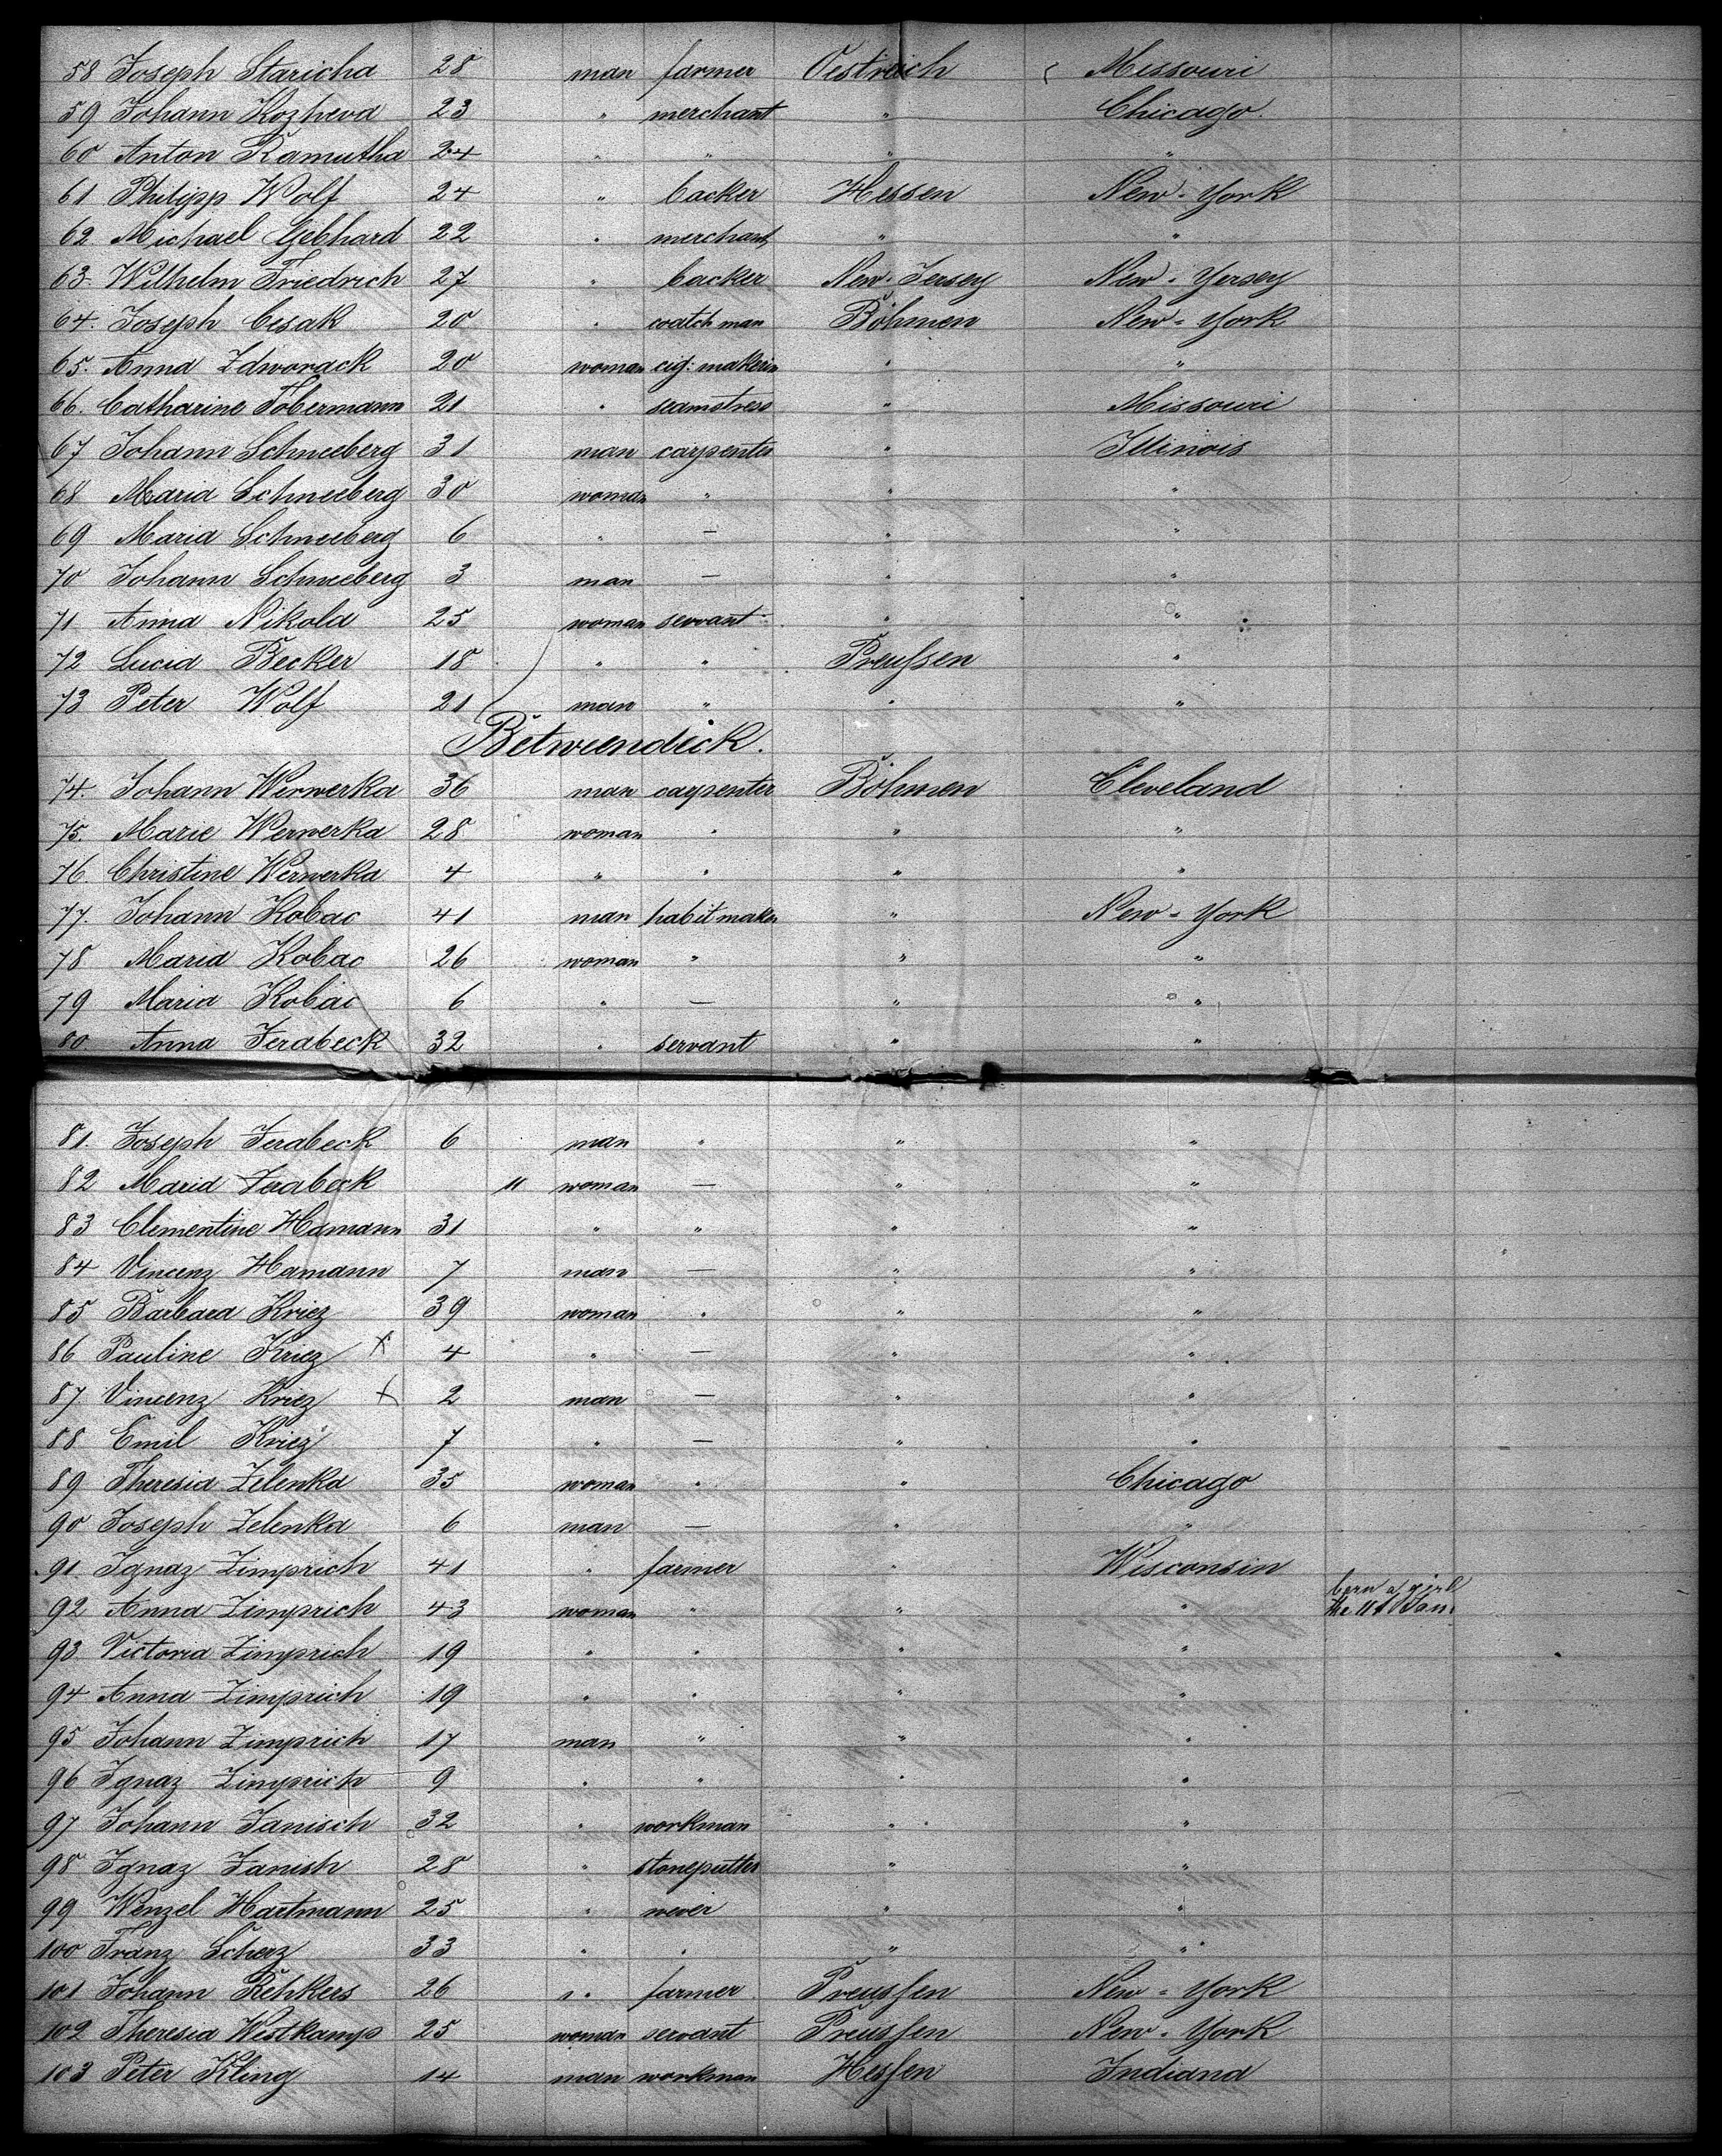 58 Joseph Staricha 28 man farmer Oestreich Missouri
59 Johann Kozheva 23 " merchant " Chicago.
60 Anton Ramutha 24 " " " "
61 Philipp Wolf 24 " backer Hessen New-York
62 Michael Gebhard 22 " merchant " "
63. Wilhelm Friedrich 27 " backer New-Jersey New-Yersey
64. Joseph Cesak 20 " watch man Böhmen New-York
65. Anna Zdworack 20 woman cig: makerin " "
66. Catharine Tobermann 21 " seamstress " Missouri
67 Johann Schneeberg 31 man carpenter " Illinois
68 Maria Schneeberg 30 woman " " "
69 Maria Schneeberg 6 " — " "
70 Johann Schneeberg 3 man — " "
71 Anna Nikola 25 woman servant " "
72 Lucia Becker 18 " " Preussen "
73 Peter Wolf 21 man " " "
Betweendeck.
74. Johann Werwerka 36 man carpenter Böhmen Cleveland
75. Marie Werwerka 28 woman " " "
76. Christine Werwerka 4 " " " "
77. Johann Kobac 41 man habit maker " New-York
78 Maria Kobac 26 woman " " "
79 Maria Kobac 6 " — " "
80. Anna Jerabeck 32 " servant " "
81. Joseph Jerabeck 6 man " " "
82 Maria Jerabeck 11 woman — " "
83 Clementine Hamann 31 " " " "
84 Vincenz Hamann 7 man — " "
85 Barbara Kriez 39 woman " " "
86 Pauline Kriez x 4 " — " "
87. Vincenz Kriez x 2 man — " "
88 Emil Kriez 7 " — " "
89 Theresia Zelenka 35 woman " " Chicago
90 Joseph Zelenka 6 man — " "
91. Ignaz Zimprich 41 " farmer " Wisconsin
92 Anna Zimprich 43 woman " " " born a girl the 11t Jan.
93 Victoria Zimprich 19 " " " "
94 Anna Zimprich 19 " " " "
95 Johann Zimprich 17 man " " "
96 Ignaz Zimprich 9 " " " "
97 Johann Janisch 32 " workman " "
98 Ignaz Janish 28 " stoneputter " "
99 Wenzel Hartmann 25 " wever " "
100 Franz Scherz 33 " " " "
101 Johann Rehkers 26 " farmer Preussen New-York
102 Theresia Westkamp 25 woman servant Preussen New-York
103 Peter Kling 14 man workman Hessen Indiana